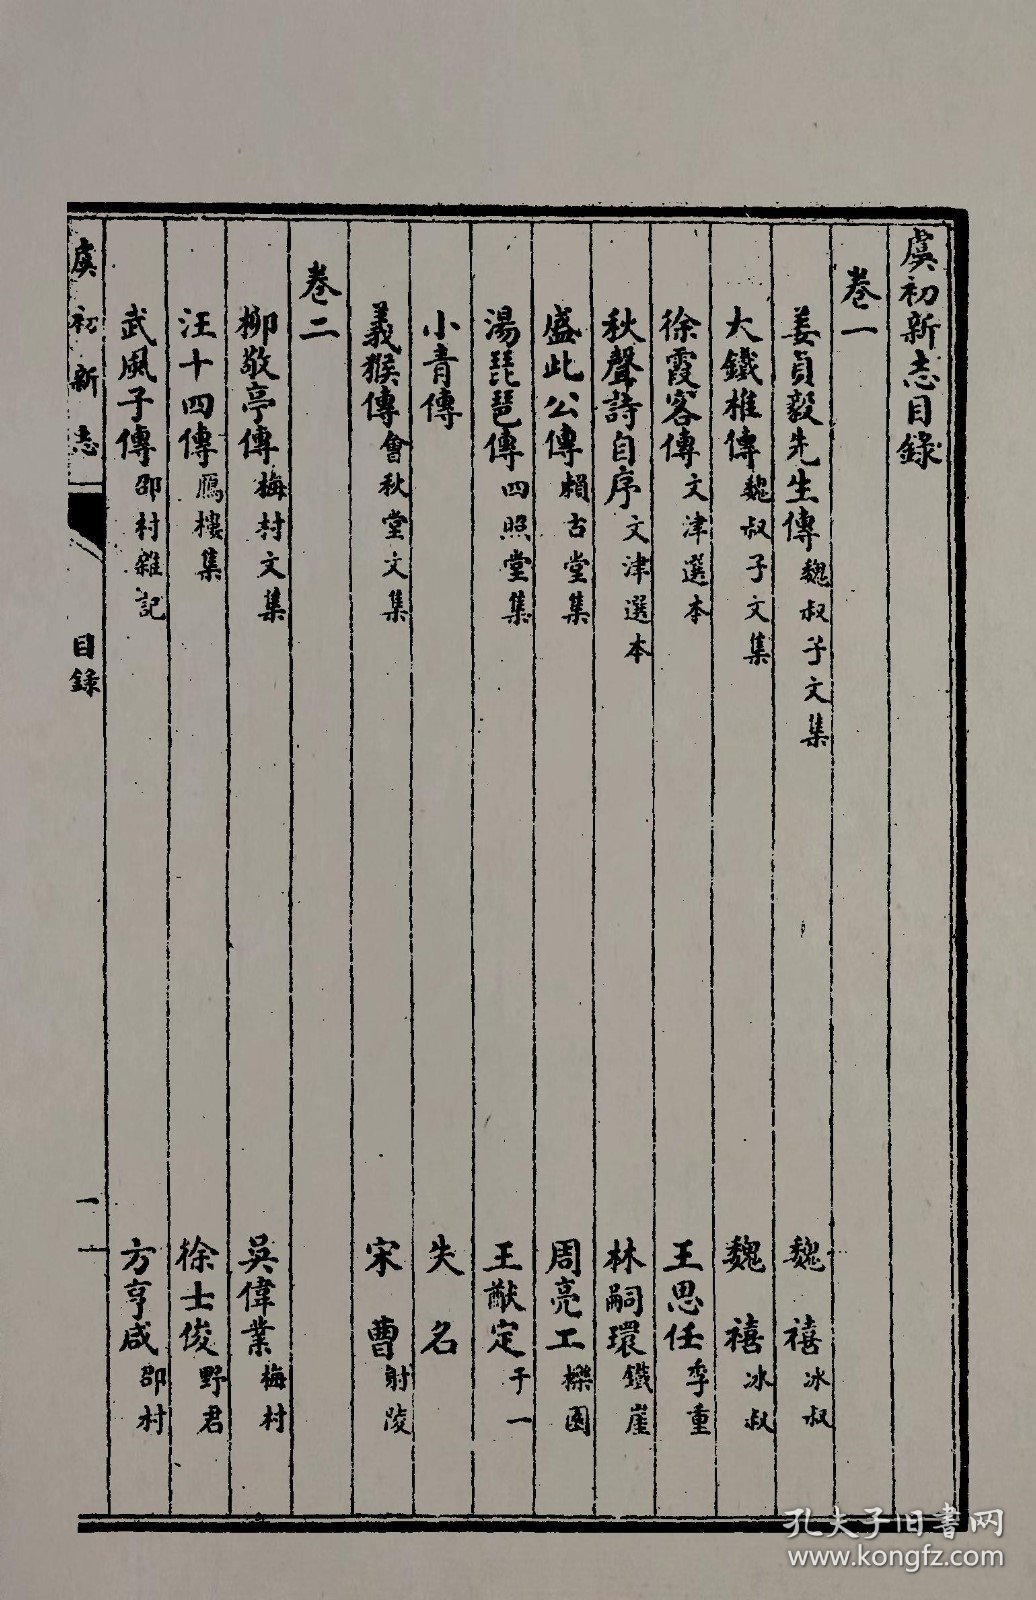 虞初新志目錄
卷一
姜貞毅先生傳 魏叔子文集 魏禧 冰叔
大鐵椎傳 魏叔子文集 魏禧 冰叔
徐霞客傳 文津選本 王思任 季重
秋聲詩自序 文津選本 林嗣環 鐵崖
盛此公傳 賴古堂集 周亮工 櫟園
湯琵琶傳 四照堂集 王猷定 于一
小青傳 失名
義猴傳 會秋堂文集 宋曹 射陵
卷二
柳敬亭傳 梅村文集 吳偉業 梅村
汪十四傳 鴈樓集 徐士俊 野君
武風子傳 邵村雜記 方亨咸 邵村
虞初新志 目錄 一
孔夫子旧书网
www.kongfz.com